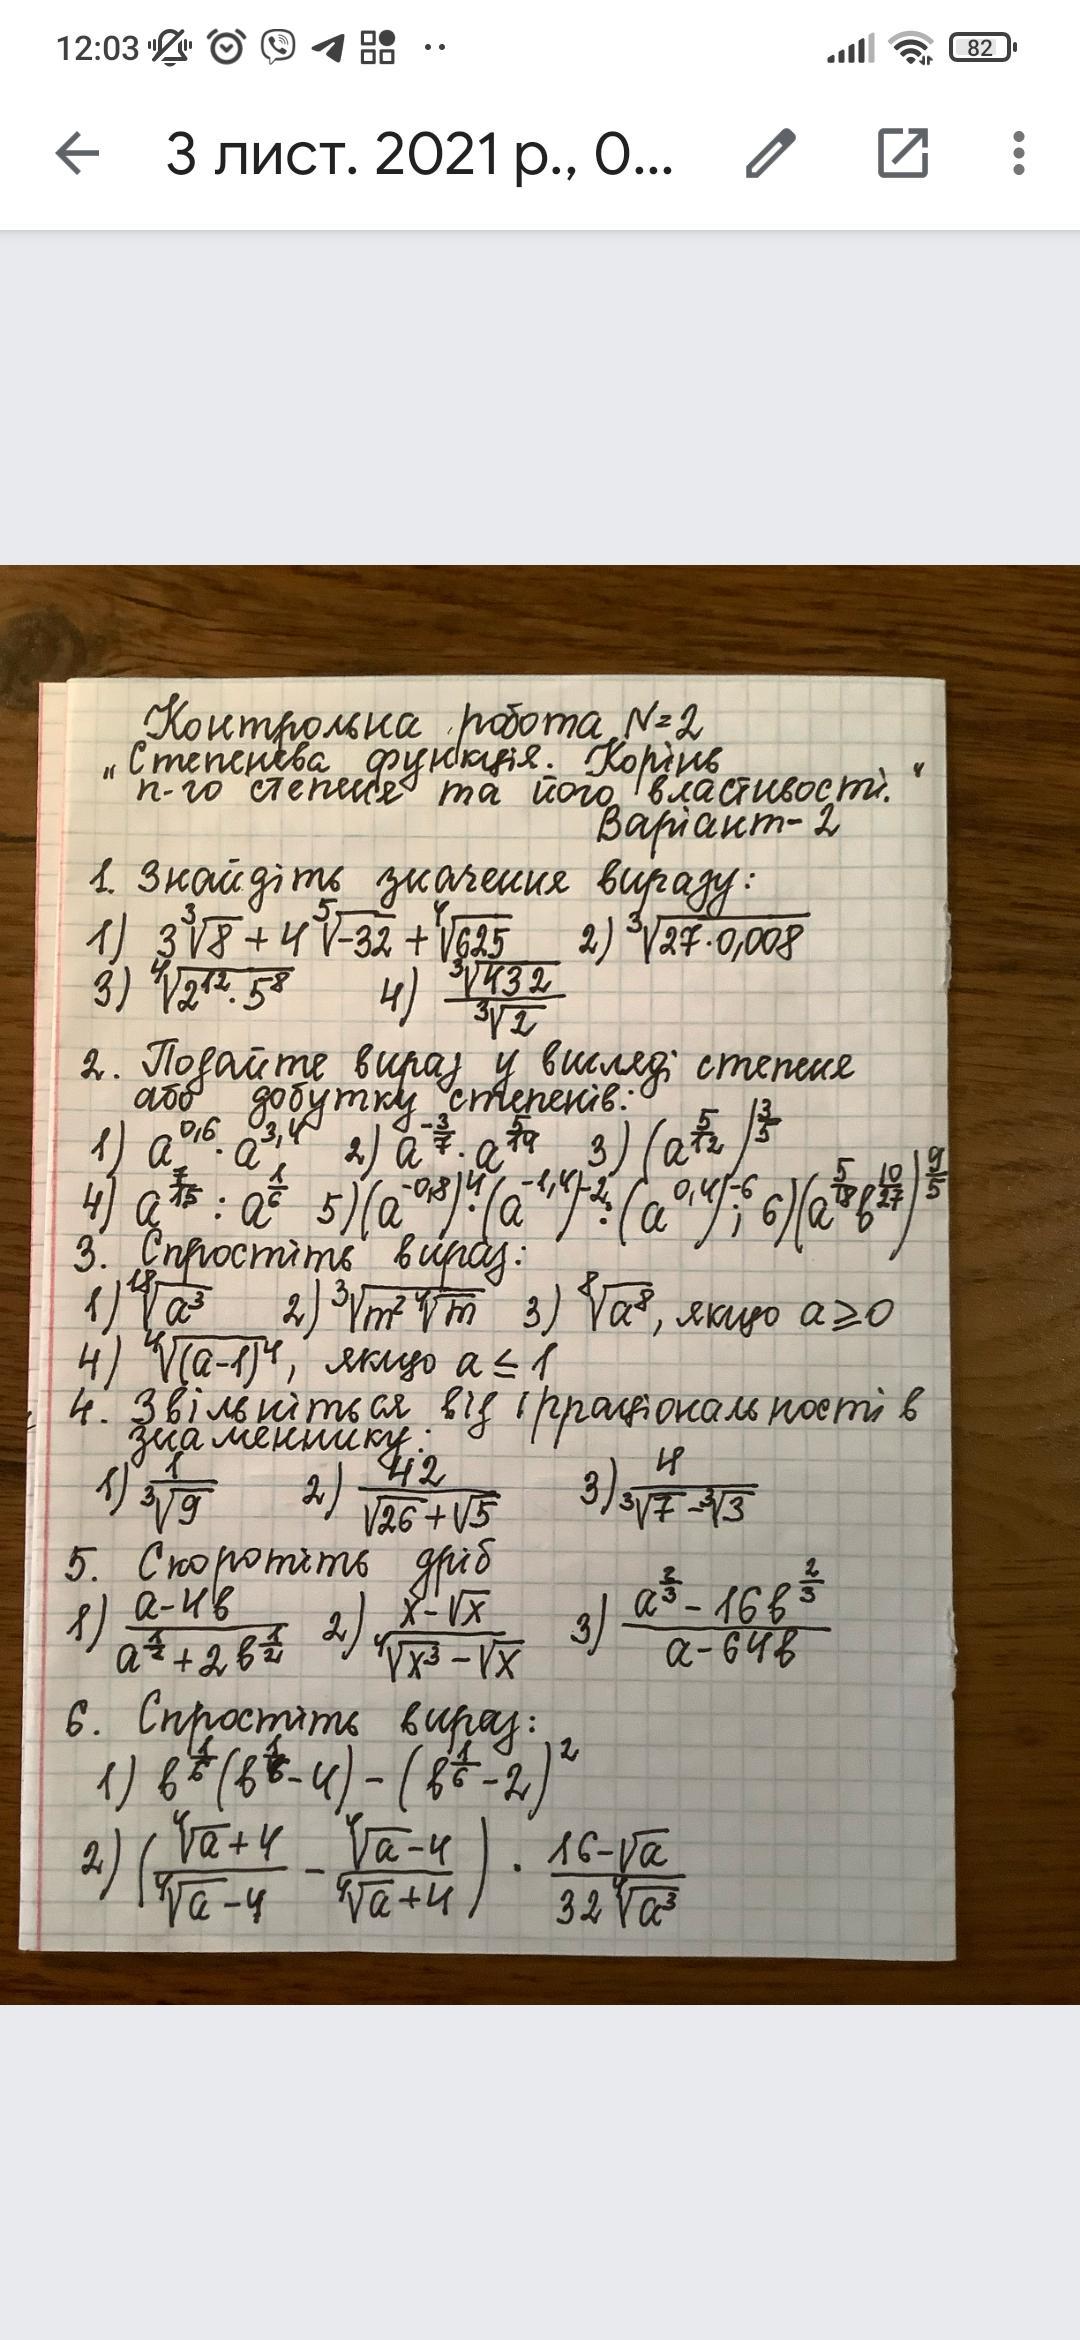 12:03 82
3 лист. 2021 р., 0...
Контрольна робота N=2
„Степенева функція. Корінь
n-го степеня та його властивості."
Варіант-2
1. Знайдіть значення виразу:
1) 3∛8 + 4⁵√-32 + ⁴√625 2) ∛27·0,008
3) ⁴√2¹²·5⁸ 4) ∛432/∛2
2. Подайте вираз у вигляді степеня
або добутку степенів:
1) a^0,6 · a^3,4 2) a^-3/7 · a^5/14 3) (a^5/12)^3/5
4) a^7/15 : a^1/6 5) (a^-0,8)^4 · (a^-1,4)^-2 : (a^0,4)^-6; 6) (a^5/18 b^10/27)^9/5
3. Спростіть вираз:
1) ¹⁸√a³ 2) ∛m² ⁴√m 3) ⁸√a⁸, якщо a ≥ 0
4) ⁴√(a-1)⁴, якщо a ≤ 1
4. Звільніться від ірраціональності в
знаменнику:
1) 1/∛9 2) 42/(√26+√5) 3) 4/(∛7-∛3)
5. Скоротіть дріб
1) (a-4b)/(a^1/2+2b^1/2) 2) (x-√x)/(⁴√x³-√x) 3) (a^2/3-16b^2/3)/(a-64b)
6. Спростіть вираз:
1) b^1/6(b^1/6-4)-(b^1/6-2)²
2) ((⁴√a+4)/(⁴√a-4) - (⁴√a-4)/(⁴√a+4)) · (16-√a)/(32 ⁴√a³)